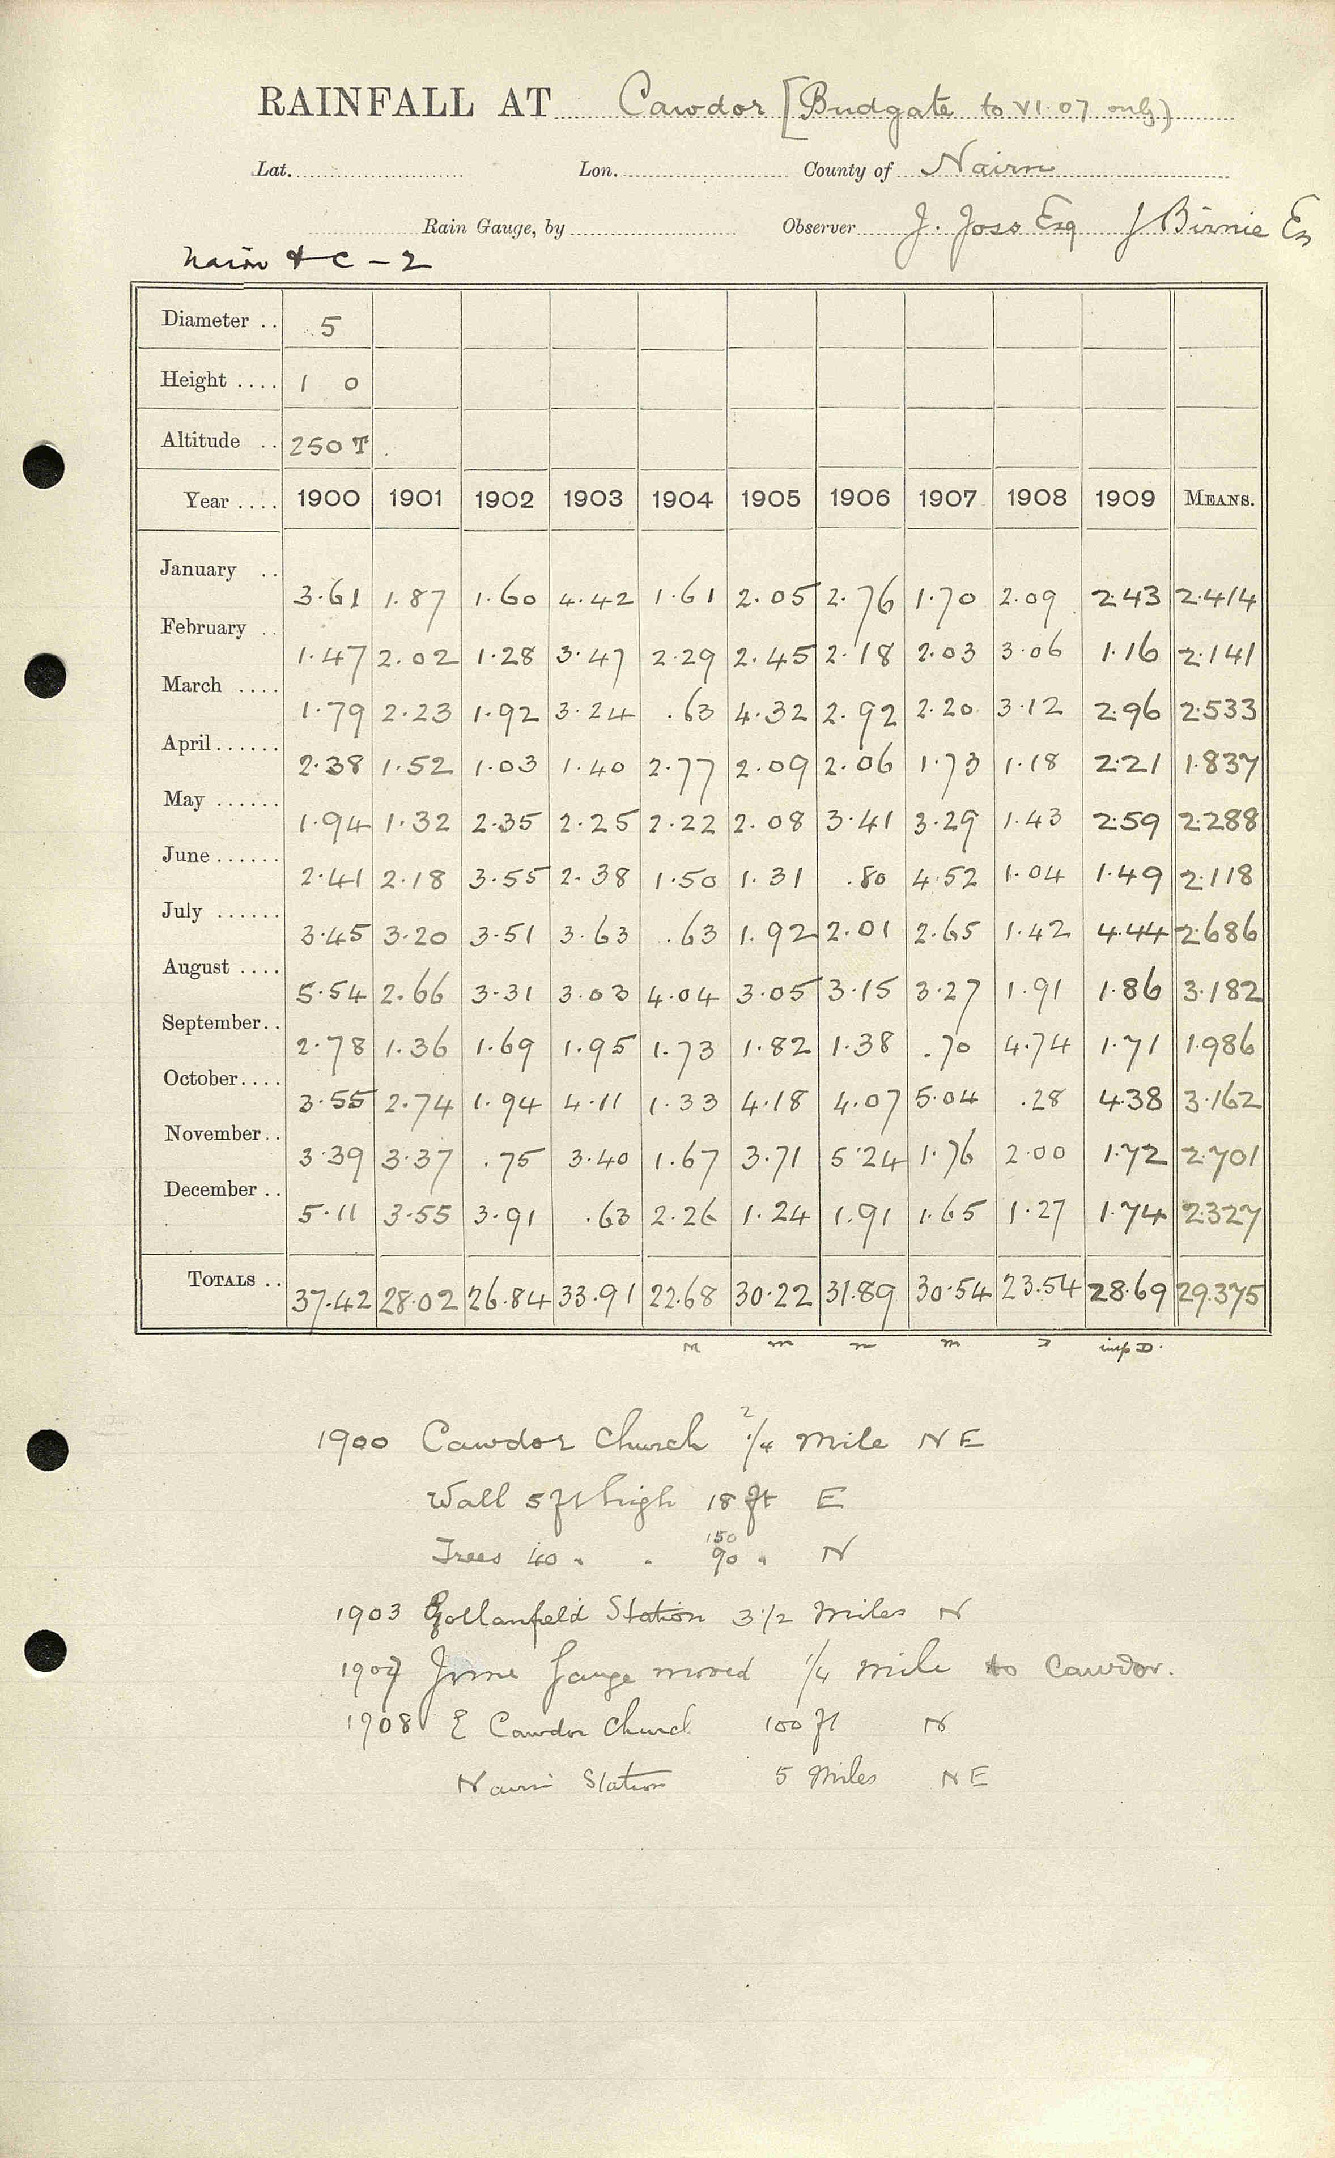 RAINFALL AT Cawdor [Budgate to VI.07 only)
Lat. Lon. County of Nairn
Rain Gauge, by Observer J. Joss Esq J Birnie Es
Nairn & C - 2
Diameter .. 5
Height .... 1 0
Altitude .. 250 T.
Year .... 1900 1901 1902 1903 1904 1905 1906 1907 1908 1909 MEANS.
January .. 3.61 1.87 1.60 4.42 1.61 2.05 2.76 1.70 2.09 2.43 2.414
February .. 1.47 2.02 1.28 3.47 2.29 2.45 2.18 2.03 3.06 1.16 2.141
March .... 1.79 2.23 1.92 3.24 .63 4.32 2.92 2.20 3.12 2.96 2.533
April...... 2.38 1.52 1.03 1.40 2.77 2.09 2.06 1.73 1.18 2.21 1.837
May ...... 1.94 1.32 2.35 2.25 2.22 2.08 3.41 3.29 1.43 2.59 2.288
June...... 2.41 2.18 3.55 2.38 1.50 1.31 .80 4.52 1.04 1.49 2.118
July ...... 3.45 3.20 3.51 3.63 .63 1.92 2.01 2.65 1.42 4.44 2.686
August .... 5.54 2.66 3.31 3.03 4.04 3.05 3.15 3.27 1.91 1.86 3.182
September.. 2.78 1.36 1.69 1.95 1.73 1.82 1.38 .70 4.74 1.71 1.986
October.... 3.55 2.74 1.94 4.11 1.33 4.18 4.07 5.04 .28 4.38 3.162
November.. 3.39 3.37 .75 3.40 1.67 3.71 5.24 1.76 2.00 1.72 2.701
December .. 5.11 3.55 3.91 .63 2.26 1.24 1.91 1.65 1.27 1.74 2.327
TOTALS .. 37.42 28.02 26.84 33.91 22.68 30.22 31.89 30.54 23.54 28.69 29.375
M m m D insp D.
1900 Cawdor Church 2 1/4 mile NE
Wall 5 ft high 18 ft E
150
Trees 40 " " 90 " N
1903 Gollanfield Station 3 1/2 miles N
1907 June Gauge moved 1/4 mile to Cawdor.
1908 E Cawdor Church 100 ft N
Nairn Station 5 Miles NE